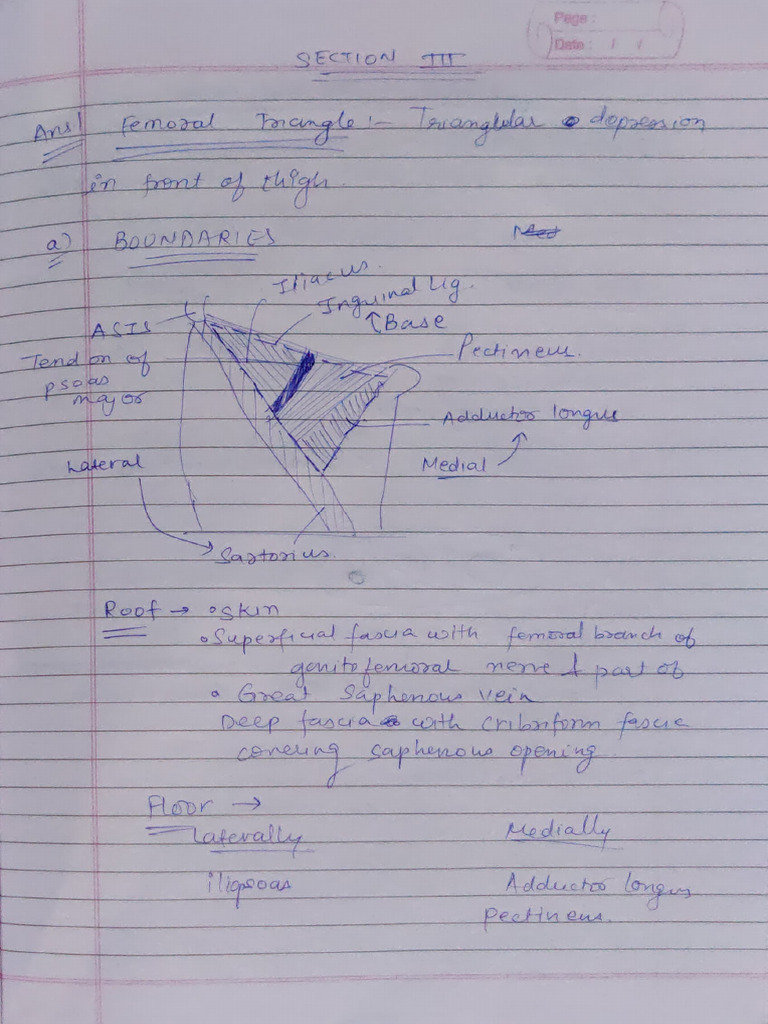 Page :
Date : / /
SECTION III
Ans1 Femoral Triangle :- Triangular depression
in front of thigh.
a) BOUNDARIES
Iliacus.
Inguinal Lig.
↑Base
ASIS
Pectineus.
Tendon of
psoas
major
Adductor longus
Lateral
Medial
Sartorius.
Roof → • Skin
• Superficial fascia with femoral branch of
genitofemoral nerve & part of
• Great Saphenous vein
Deep fascia with cribriform fascia
covering saphenous opening.
Floor →
Laterally Medially
iliopsoas Adductor longus
Pectineus.